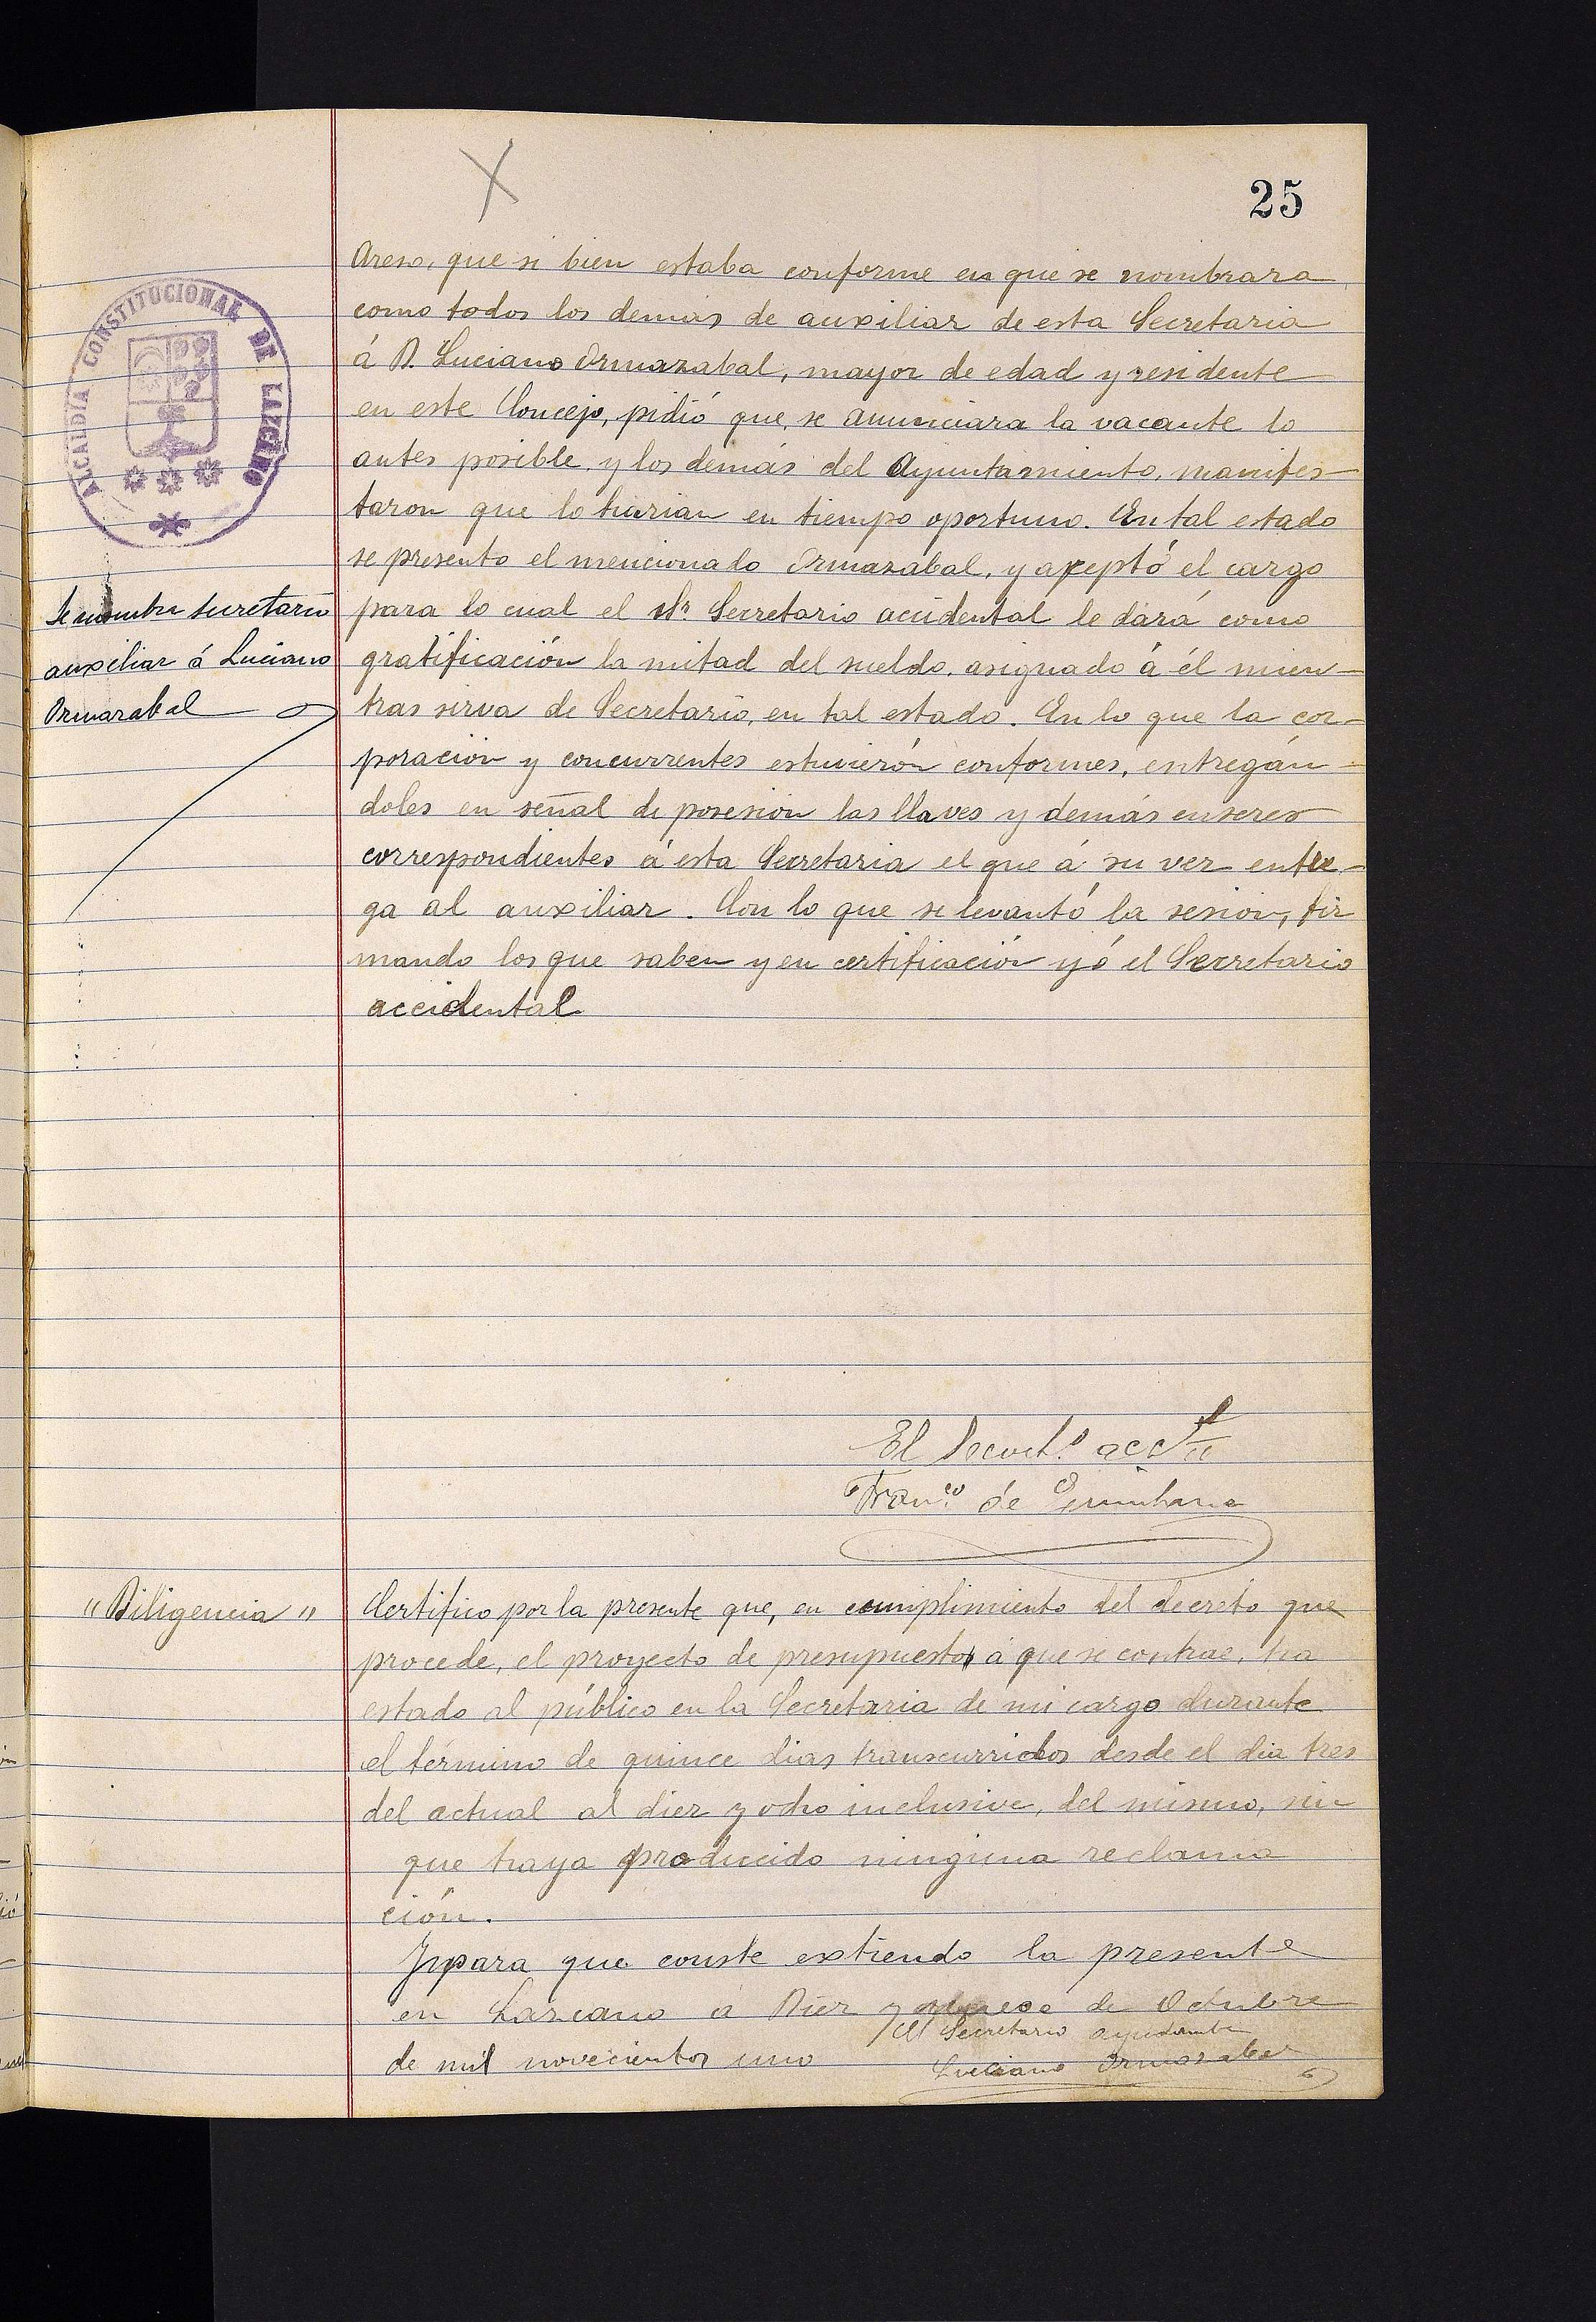 25
Areso, que si bien estaba conforme en que se nombrara
como todos los demás de auxiliar de esta Secretaria
á D. Luciano Ormazabal, mayor de edad y residente
en este Concejo, pidió que, se anunciara la vacante lo
antes posible, y los demás del Ayuntamiento, manifes-
taron que lo harian en tiempo oportuno. En tal estado
se presento el mencionado Ormazabal, y aceptó el cargo
para lo cual el Sr. Secretario accidental le dará como
gratificación la mitad del sueldo, asignado á él mien-
tras sirva de Secretario, en tal estado. En lo que la cor-
poración y concurrentes estuvierón conformes, entregán-
doles en señal de posesión las llaves y demás enseres
correspondientes á esta Secretaria el que á su vez entre-
ga al auxiliar. Con lo que se levantó la sesión, fir
mando los que saben y en certificación yó el Secretario
accidental
ALCALDÍA CONSTITUCIONAL DE LAZCANO
Se nombra secretario
auxiliar á Luciano
Ormazabal
El Secret.º acc.tal
Fran.co de
"Diligencia"
Certifico por la presente que, en cumplimiento del decreto que
procede, el proyecto de presupuestos á que se contrae, ha
estado al público en la Secretaria de mi cargo durante
el término de quince dias transcurridos desde el dia tres
del actual al diez y ocho inclusive, del mismo, sin
que haya producido ninguna reclama
ción.
Y para que conste extiendo la presente
en Lazcano á Diez y de Octubre
de mil novecientos uno
El Secretario ayudante
Luciano Ormazabal